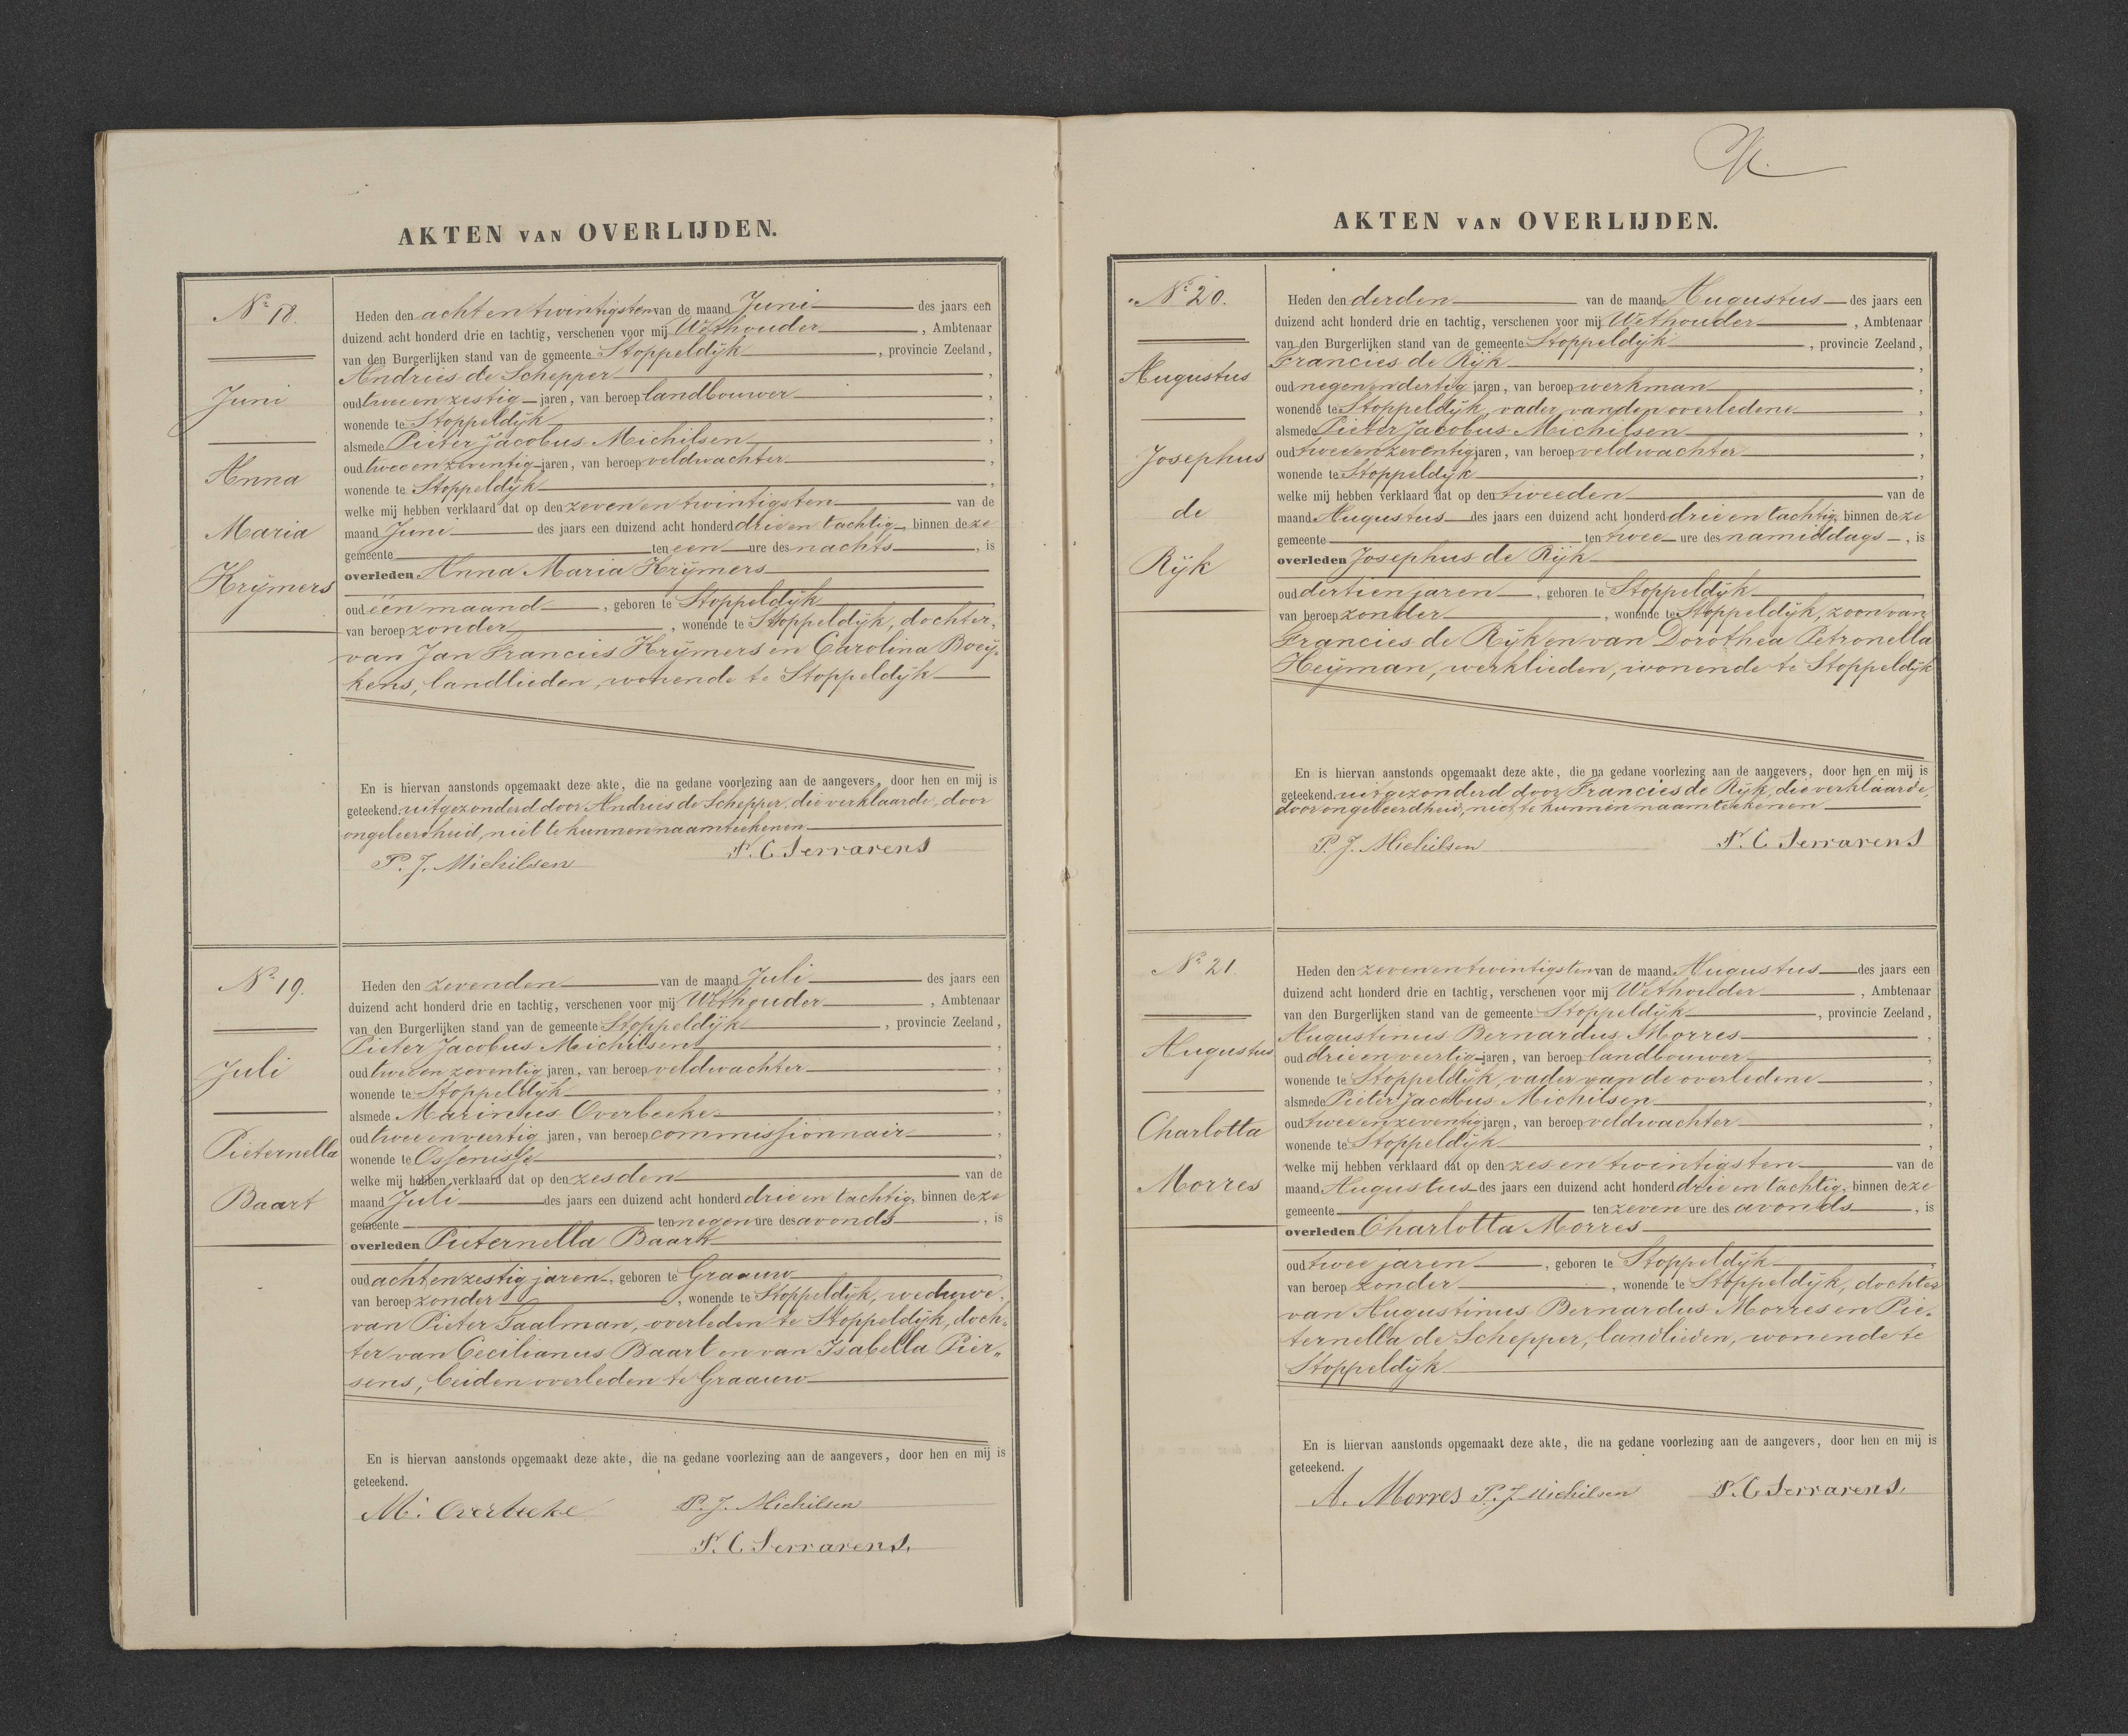 AKTEN VAN OVERLIJDEN.
Nº 18.
Juni
Anna
Maria
Krijmers
Heden den acht en twintigsten van de maand Juni des jaars een
duizend acht honderd drie en tachtig, verschenen voor mij Wethouder, Ambtenaar
van den Burgerlijken stand van de gemeente Stoppeldijk, provincie Zeeland,
Andries de Schepper,
oud twee en zestig jaren, van beroep landbouwer,
wonende te Stoppeldijk,
alsmede Pieter Jacobus Michilsen,
oud twee en zeventig jaren, van beroep veldwachter,
wonende te Stoppeldijk,
welke mij hebben verklaard dat op den zeven en twintigsten van de
maand Juni des jaars een duizend acht honderd drie en tachtig, binnen deze
gemeente ten een ure des nachts, is
overleden Anna Maria Krijmers
oud één maand, geboren te Stoppeldijk
van beroep zonder, wonende te Stoppeldijk, dochter,
van Jan Francies Krijmers en Carolina Boey-
kens, landlieden, wonende te Stoppeldijk
En is hiervan aanstonds opgemaakt deze akte, die na gedane voorlezing aan de aangevers, door hen en mij is
geteekend, uitgezonderd door Andries de Schepper, die verklaarde, door
ongeleerdheid, niet te kunnen naamteekenen
P. J. Michilsen F. C. Serrarens
Nº 19.
Juli
Pieternella
Baart
Heden den zevenden van de maand Juli des jaars een
duizend acht honderd drie en tachtig, verschenen voor mij Wethouder, Ambtenaar
van den Burgerlijken stand van de gemeente Stoppeldijk, provincie Zeeland,
Pieter Jacobus Michilsen,
oud twee en zeventig jaren, van beroep veldwachter,
wonende te Stoppeldijk,
alsmede Marinus Overbeeke,
oud twee en veertig jaren, van beroep commissionnair,
wonende te Ossenisse,
welke mij hebben verklaard dat op den zesden van de
maand Juli des jaars een duizend acht honderd drie en tachtig, binnen deze
gemeente ten negen ure des avonds, is
overleden Pieternella Baart
oud acht en zestig jaren, geboren te Graauw
van beroep zonder, wonende te Stoppeldijk, weduwe,
van Pieter Taalman, overleden te Stoppeldijk, doch-
ter van Cecilianus Baart en van Isabella Pier-
sens, beiden overleden te Graauw
En is hiervan aanstonds opgemaakt deze akte, die na gedane voorlezing aan de aangevers, door hen en mij is
geteekend.
M. Overbeeke P. J. Michilsen
F. C. Serrarens.
AKTEN VAN OVERLIJDEN.
Nº 20.
Augustus
Josephus
de
Rijk
Heden den derden van de maand Augustus des jaars een
duizend acht honderd drie en tachtig, verschenen voor mij Wethouder, Ambtenaar
van den Burgerlijken stand van de gemeente Stoppeldijk, provincie Zeeland,
Francies de Rijk,
oud negen en dertig jaren, van beroep werkman,
wonende te Stoppeldijk, vader van den overledene,
alsmede Pieter Jacobus Michilsen,
oud twee en zeventig jaren, van beroep veldwachter,
wonende te Stoppeldijk,
welke mij hebben verklaard dat op den tweeden van de
maand Augustus des jaars een duizend acht honderd drie en tachtig, binnen deze
gemeente ten twee ure des namiddags, is
overleden Josephus de Rijk
oud dertien jaren, geboren te Stoppeldijk
van beroep zonder, wonende te Stoppeldijk, zoon van
Francies de Rijk en van Dorothea Petronella
Heijman, werklieden, wonende te Stoppeldijk
En is hiervan aanstonds opgemaakt deze akte, die na gedane voorlezing aan de aangevers, door hen en mij is
geteekend. uitgezonderd door Francies de Rijk, die verklaarde,
door ongeleerdheid, niet te kunnen naamteekenen
P. J. Michilsen F. C. Serrarens
Nº 21.
Augustus
Charlotta
Morres
Heden den zeven en twintigsten van de maand Augustus des jaars een
duizend acht honderd drie en tachtig, verschenen voor mij Wethouder, Ambtenaar
van den Burgerlijken stand van de gemeente Stoppeldijk, provincie Zeeland,
Augustinus Bernardus Morres,
oud drie en veertig jaren, van beroep landbouwer,
wonende te Stoppeldijk, vader van de overledene,
alsmede Pieter Jacobus Michilsen,
oud twee en zeventig jaren, van beroep veldwachter,
wonende te Stoppeldijk,
welke mij hebben verklaard dat op den zes en twintigsten van de
maand Augustus des jaars een duizend acht honderd drie en tachtig, binnen deze
gemeente ten zeven ure des avonds, is
overleden Charlotta Morres
oud twee jaren, geboren te Stoppeldijk
van beroep zonder, wonende te Stoppeldijk, dochter
van Augustinus Bernardus Morres en Pie-
ternella de Schepper, landlieden, wonende te
Stoppeldijk
En is hiervan aanstonds opgemaakt deze akte, die na gedane voorlezing aan de aangevers, door hen en mij is
geteekend.
A. Morres P. J. Michilsen F. C. Serrarens.